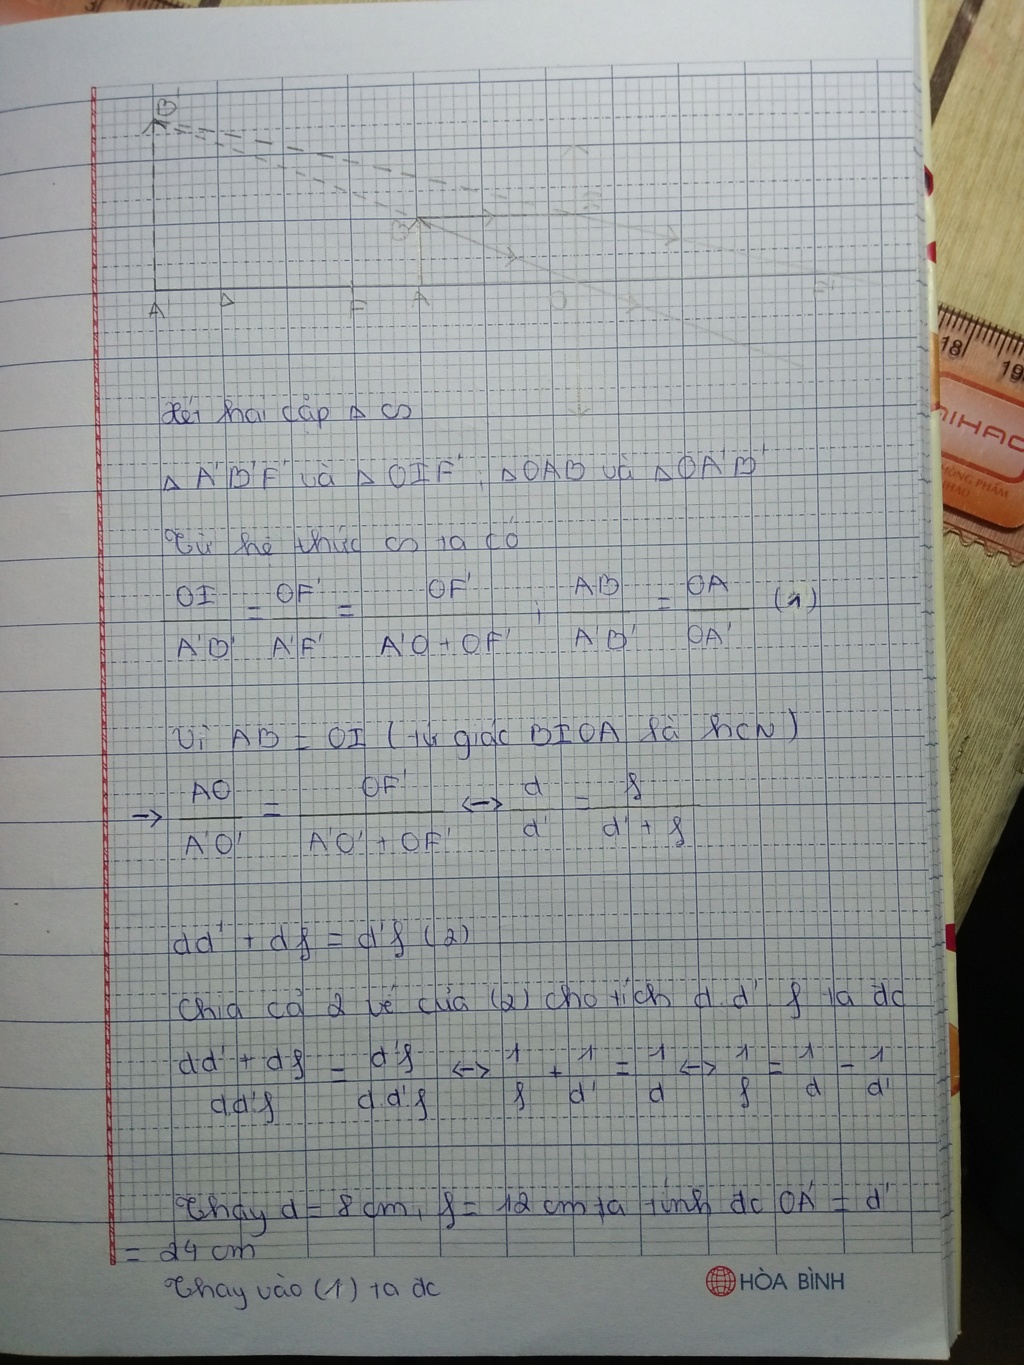 B'
B
I
A'
Δ
F
A
O
F'
Xét hai cặp Δ ∽
Δ A'B'F' và Δ OIF' ; Δ OAB và Δ OA'B'
Từ hệ thức ∽ ta có
OI/A'B' = OF'/A'F' = OF'/(A'O + OF') ; AB/A'B' = OA/OA' (1)
Vì AB = OI (tứ giác BIOA là hcn)
→ AO/A'O' = OF'/(A'O' + OF') ↔ d/d' = f/(d' + f)
dd' + df = d'f (2)
Chia cả 2 vế của (2) cho tích d.d'.f ta đc
(dd' + df)/(d.d'f) = d'f/(d.d'f) ↔ 1/f + 1/d' = 1/d ↔ 1/f = 1/d - 1/d'
Thay d = 8 cm, f = 12 cm ta tính đc OA' = d'
= 24 cm
Thay vào (1) ta đc
HÒA BÌNH
18
19
MIHAO